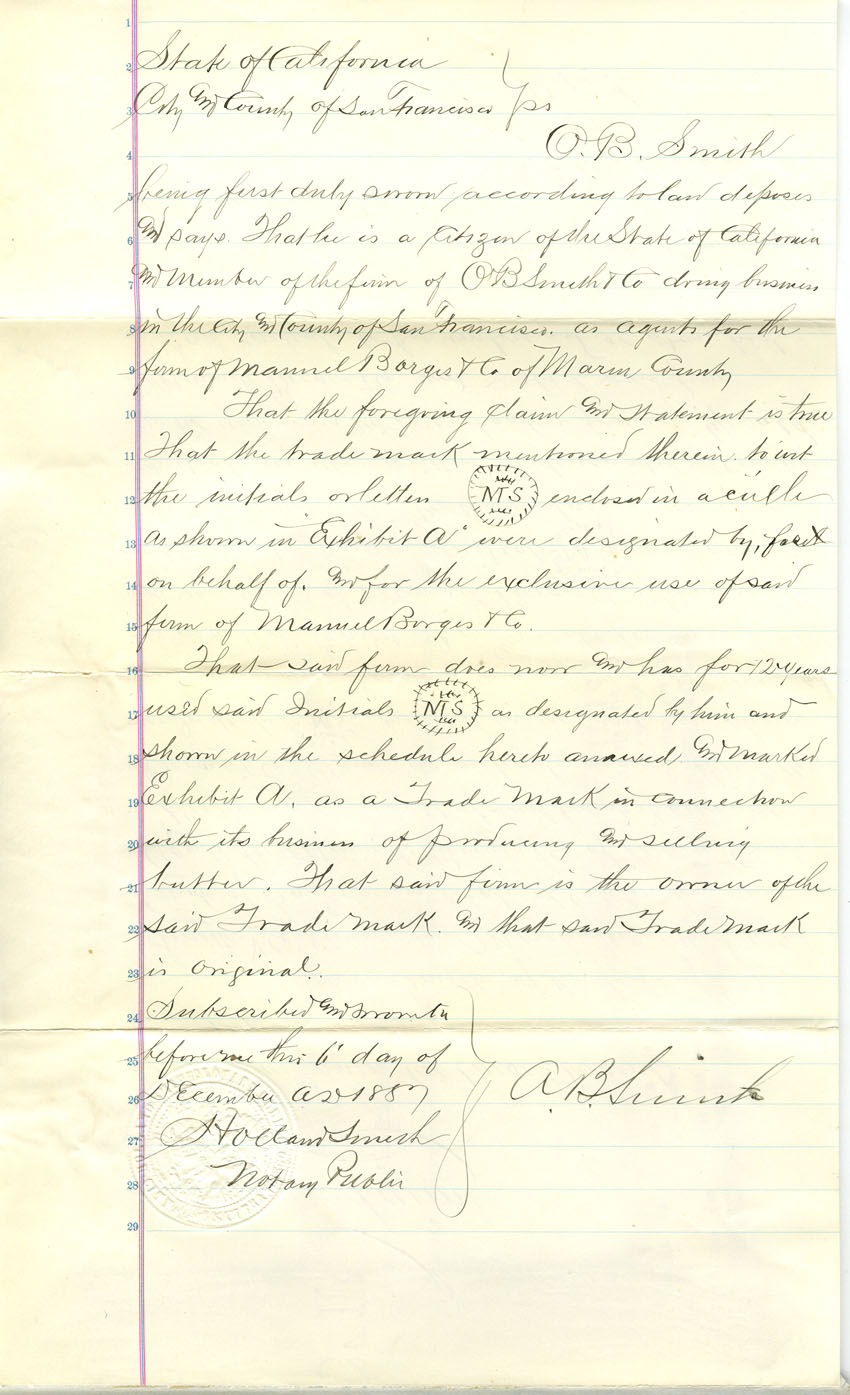 1
2 State of California
3 City and County of San Francisco } ss
4 O. B. Smith
5 being first duly sworn according to law deposes
6 and says. That he is a Citizen of the State of California
7 and Member of the firm of O B Smith & Co doing business
8 in the City and County of San Francisco. as agents for the
9 firm of Manuel Borges & Co of Marin County
10 That the foregoing claim and statement is true
11 That the trade mark mentioned therein. to wit
12 the initials or letters MS enclosed in a circle
13 as shown in "Exhibit A" were designated by, for &
14 on behalf of. and for the exclusive use of said
15 firm of Manuel Borges & Co.
16 That said firm does now and has for 12 years
17 used said Initials MS as designated by him and
18 shown in the schedule hereto annexed and marked
19 Exhibit A. as a Trade Mark in connection
20 with its business of producing and selling
21 butter. That said firm is the owner of the
22 said Trade Mark. and that said Trade Mark
23 is original.
24 Subscribed and sworn to
25 before me this 6 day of
26 December AD 1887 } O. B. Smith
27 Holland Smith
28 Notary Public
29